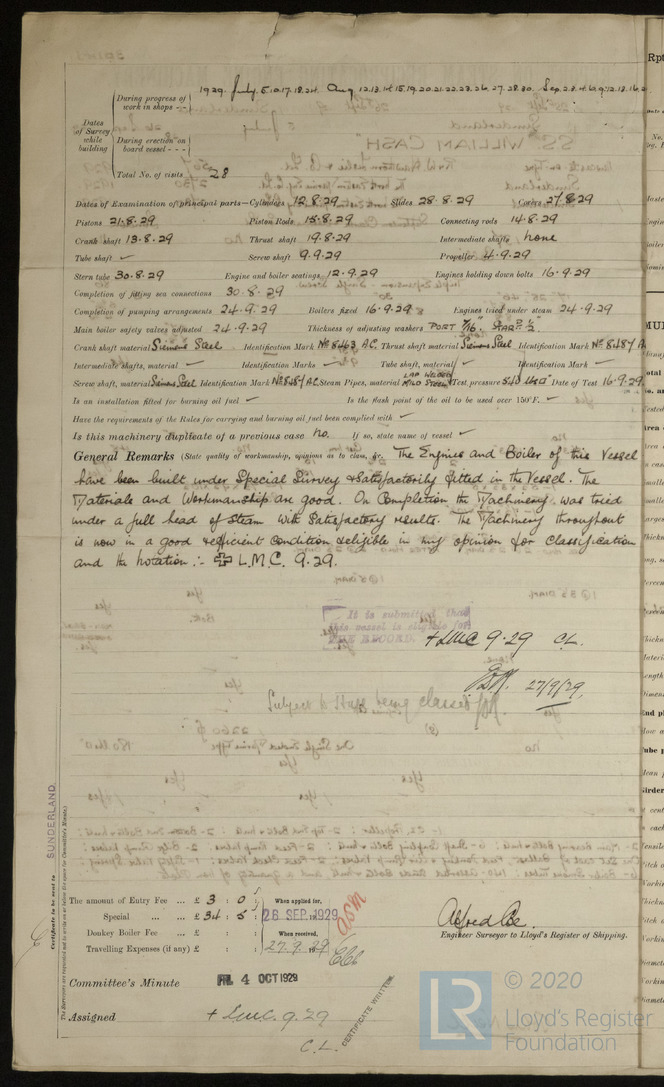 1929. July. 5.10.17.18.24. Aug. 12.13.14.15.19.20.21.22.23.26.27.28.30. Sep. 2.3.4.6.9.12.13.16.
During progress of work in shops - -
Dates of Survey while building
During erection on board vessel - - -
Total No. of visits 28
Dates of Examination of principal parts—Cylinders 12.8.29 Slides 28.8.29 Covers 27.8.29
Pistons 21.8.29 Piston Rods 15.8.29 Connecting rods 14.8.29
Crank shaft 13.8.29 Thrust shaft 19.8.29 Intermediate shafts None
Tube shaft ✓ Screw shaft 9.9.29 Propeller 4.9.29
Stern tube 30.8.29 Engine and boiler seatings 12.9.29 Engines holding down bolts 16.9.29
Completion of fitting sea connections 30.8.29
Completion of pumping arrangements 24.9.29 Boilers fixed 16.9.29 Engines tried under steam 24.9.29
Main boiler safety valves adjusted 24.9.29 Thickness of adjusting washers PORT 7/16" STARD ½"
Crank shaft material Siemens Steel Identification Mark No 8463 AC. Thrust shaft material Siemens Steel Identification Mark No 8487 A
Intermediate shafts, material ✓ Identification Marks ✓ Tube shaft, material ✓ Identification Mark ✓
Screw shaft, material Siemens Steel Identification Mark No 8487 AC Steam Pipes, material LAP WELDED MILD STEEL Test pressure 540 lbs □" Date of Test 16.9.29.
Is an installation fitted for burning oil fuel ✓ Is the flash point of the oil to be used over 150°F. ✓
Have the requirements of the Rules for carrying and burning oil fuel been complied with ✓
Is this machinery duplicate of a previous case No. If so, state name of vessel ✓
General Remarks (State quality of workmanship, opinions as to class, &c. The Engines and Boiler of this Vessel
have been built under Special Survey & satisfactorily fitted in the Vessel. The
Materials and Workmanship are good. On Completion the Machinery was tried
under a full head of Steam with Satisfactory results. The Machinery throughout
is now in a good & efficient condition & eligible in my opinion for classification
and the notation :- ✠ L.M.C. 9.29.
It is submitted that
this vessel is eligible for
THE RECORD. + LMC 9.29 CL.
27/9/29.
Subject to Hull being classed
Certificate to be sent to SUNDERLAND.
The Surveyors are requested not to write on or below the space for Committee's Minute.
The amount of Entry Fee ... £ 3 : 0 : When applied for,
Special ... ... £ 34 : 5 : 26 SEP 1929
Donkey Boiler Fee ... £ : : When received,
Travelling Expenses (if any) £ : : 27.9.1929
Alfred
Engineer Surveyor to Lloyd's Register of Shipping.
Committee's Minute FRI. 4 OCT 1929
Assigned + LMC. 9.29
C.L.
CERTIFICATE WRITTEN.
© 2020
LR Lloyd's Register
Foundation